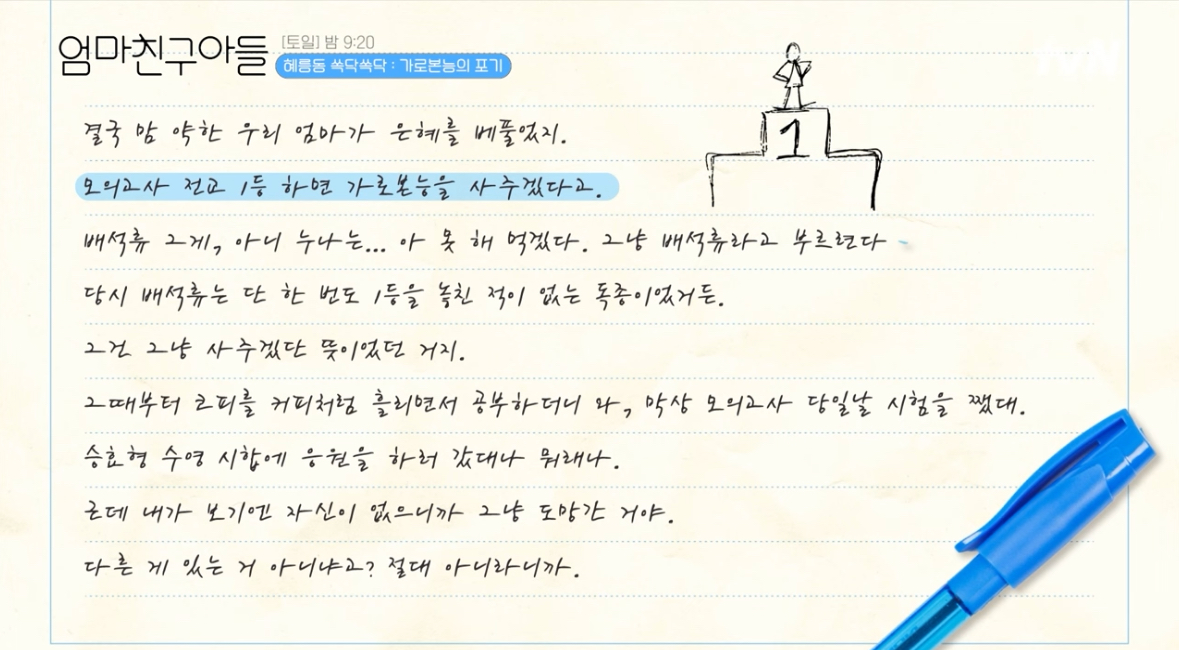 엄마친구아들
[토일] 밤 9:20
혜릉동 쑥닥쑥닥 : 가로본능의 포기
tvN
1
결국 맘 약한 우리 엄마가 은혜를 베풀었지.
모의고사 전교 1등 하면 가로본능을 사주겠다고.
배석류 그게, 아니 누나는... 아 못 해 먹겠다. 그냥 배석류라고 부르련다
당시 배석류는 단 한 번도 1등을 놓친 적이 없는 독종이었거든.
그건 그냥 사주겠단 뜻이었던 거지.
그때부터 코피를 커피처럼 흘리면서 공부하더니 와, 막상 모의고사 당일날 시험을 쨌대.
승효형 수영 시합에 응원을 하러 갔대나 뭐래나.
근데 내가 보기엔 자신이 없으니까 그냥 도망간 거야.
다른 게 있는 거 아니냐고? 절대 아니라니까.